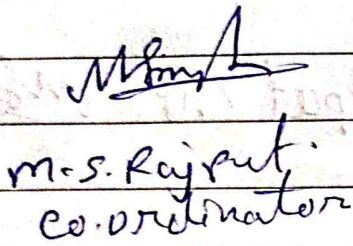 M.S. Rajput.
Co.ordinator